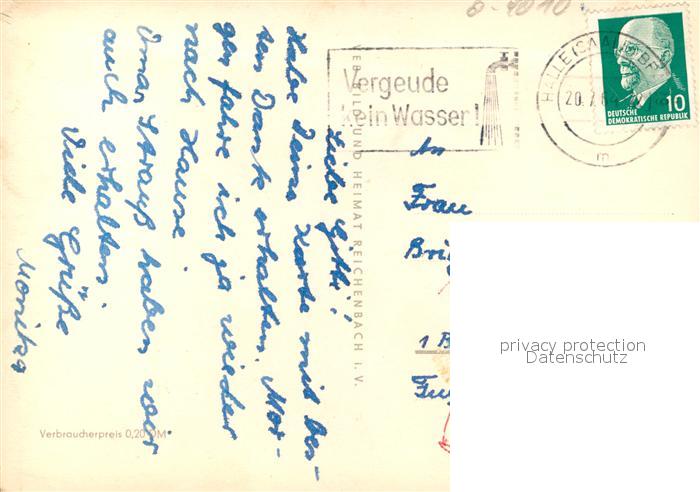 8-4010
Vergeude
kein Wasser!
HALLE (SAALE)
20.7.64
m
10
DEUTSCHE
DEMOKRATISCHE REPUBLIK
VEB BILD UND HEIMAT REICHENBACH I. V.
Liebe Gitti!
Habe Deine Karte mit bes-
ten Dank erhalten. Mor-
gen fahre ich ja wieder
nach Hause.
Omas Strauß haben wir
auch erhalten.
Viele Grüße
Monika
An
Frau
1 B
Verbraucherpreis 0,20 DM
privacy protection
Datenschutz